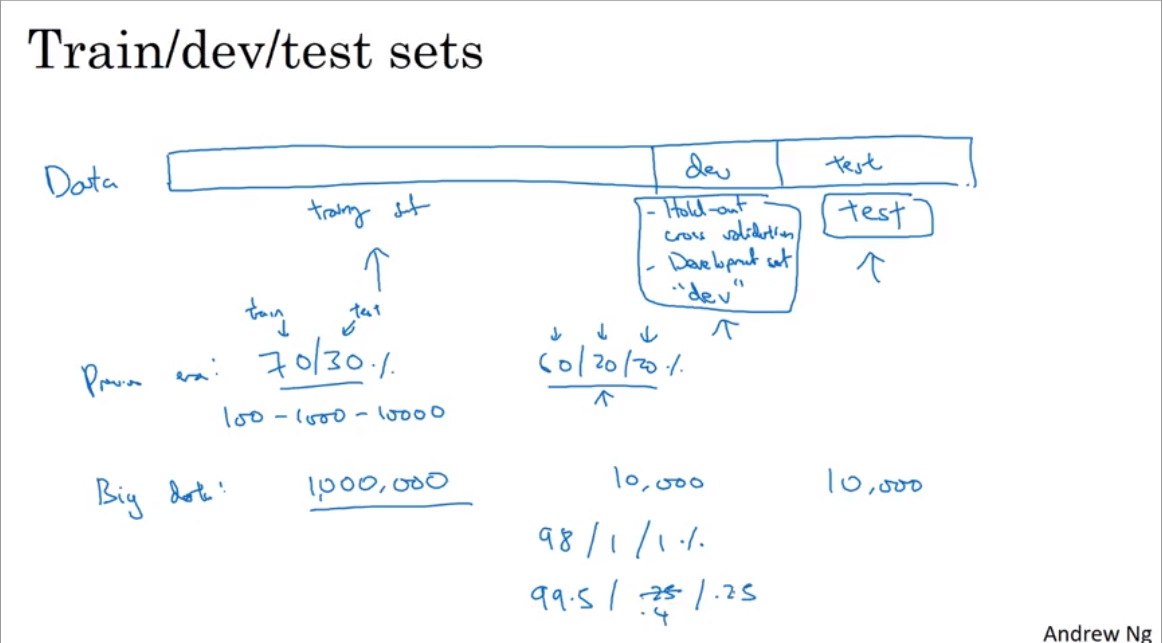 Train/dev/test sets
Data
dev
test
training set
- Hold-out
cross validation
- Development set
"dev"
test
train
test
Previous era:
70/30%
60/20/20%
100-1000-10000
Big data:
1,000,000
10,000
10,000
98/1/1%
99.5/.25/.25
.4
Andrew Ng